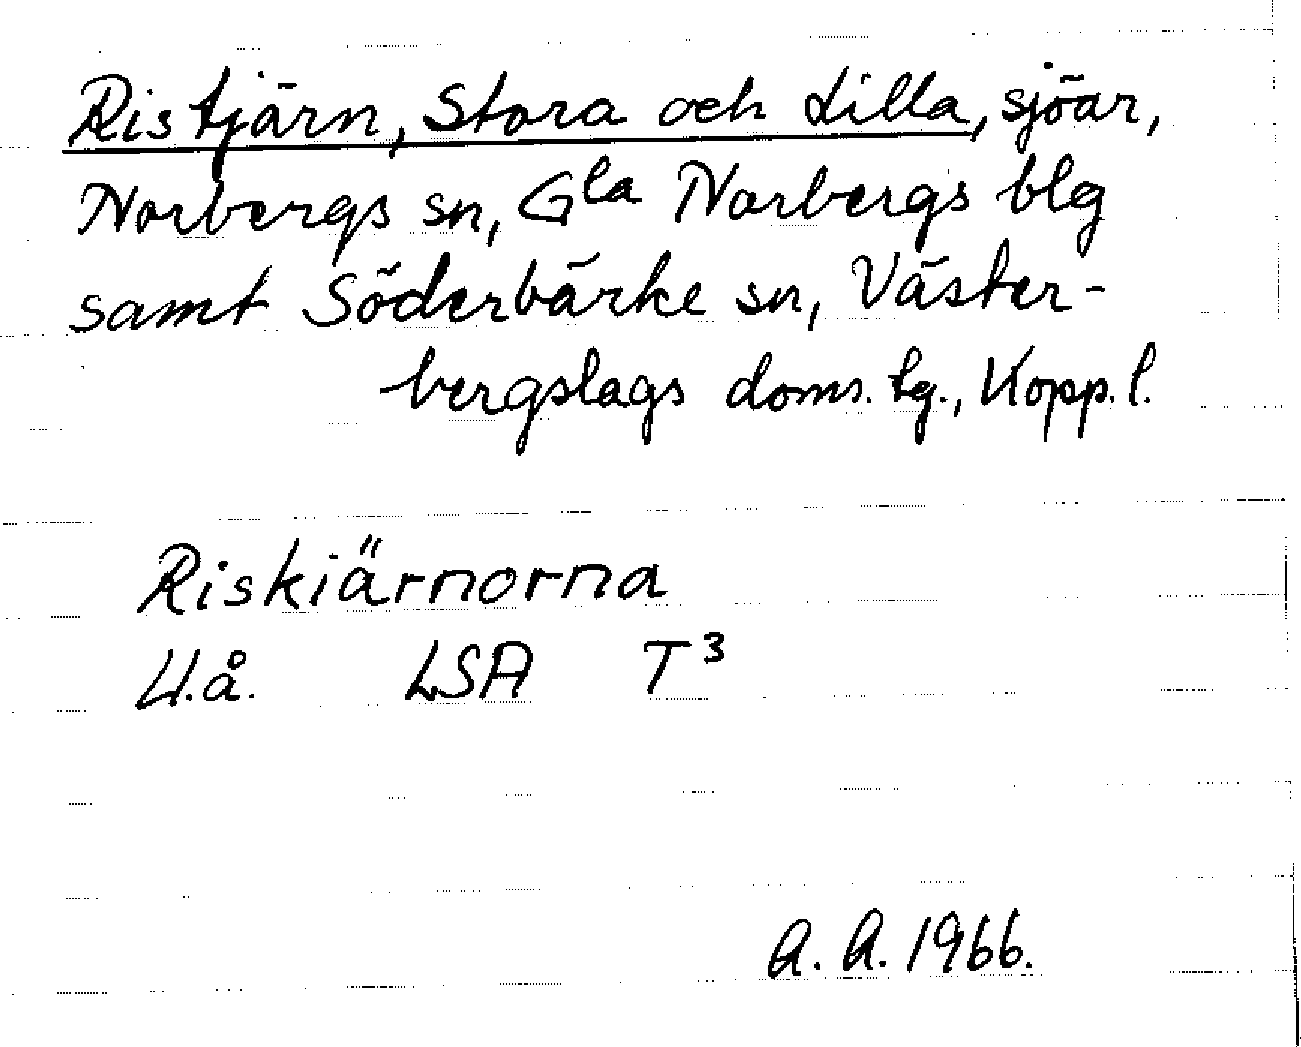 Ristjärn, Stora och Lilla, sjöar,
Norbergs sn, Gla Norbergs blg
samt Söderbärke sn, Väster-
bergslags doms. tg., Kopp. l.
Riskiärnorna
U.å. LSA T³
A. A. 1966.